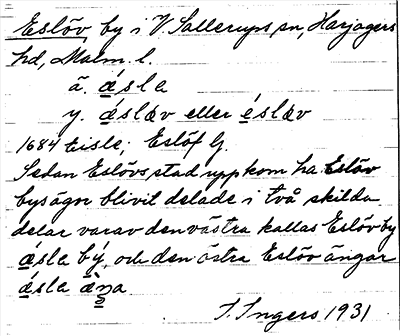 Eslöv, by i V. Sallerups sn, Harjagers
hd, Malm. l.
ä. ǽsla
y. ǽsləv eller ésləv
1684 Eisle; Eslöf G.
Sedan Eslövs stad uppkom ha Eslöv
bys ägor blivit delade i två skilda
delar varav den västra kallas Eslöv by
ǽsla bý, och den östra Eslöv ängar
ǽsla
I. Ingers 1931